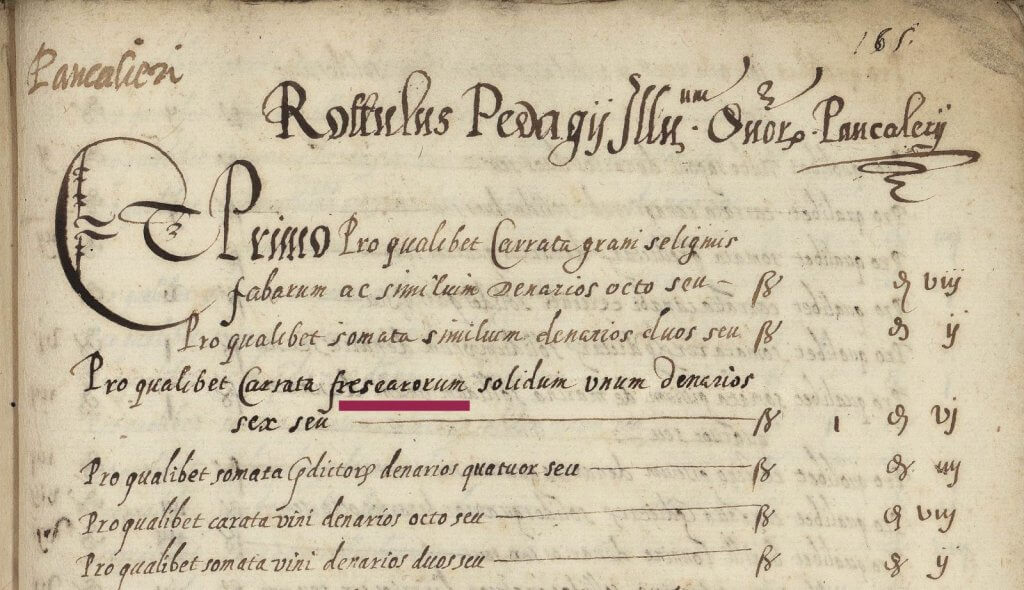 165.
Pancalieri
Rottulus Pedagij Illu.um Duor. Pancalerij
Et Primo Pro qualibet Carrata grani selignis
fabarum ac similium denarios octo seu ß đ viij
Pro qualibet somata similium denarios duos seu ß đ ij
Pro qualibet Carrata fresearorum solidum unum denarios
sex seu ß i đ vj
Pro qualibet somata denarios quatuor seu ß đ iiij
Pro qualibet carata vini denarios octo seu ß đ viij
Pro qualibet somata vini denarios duos seu ß đ ij